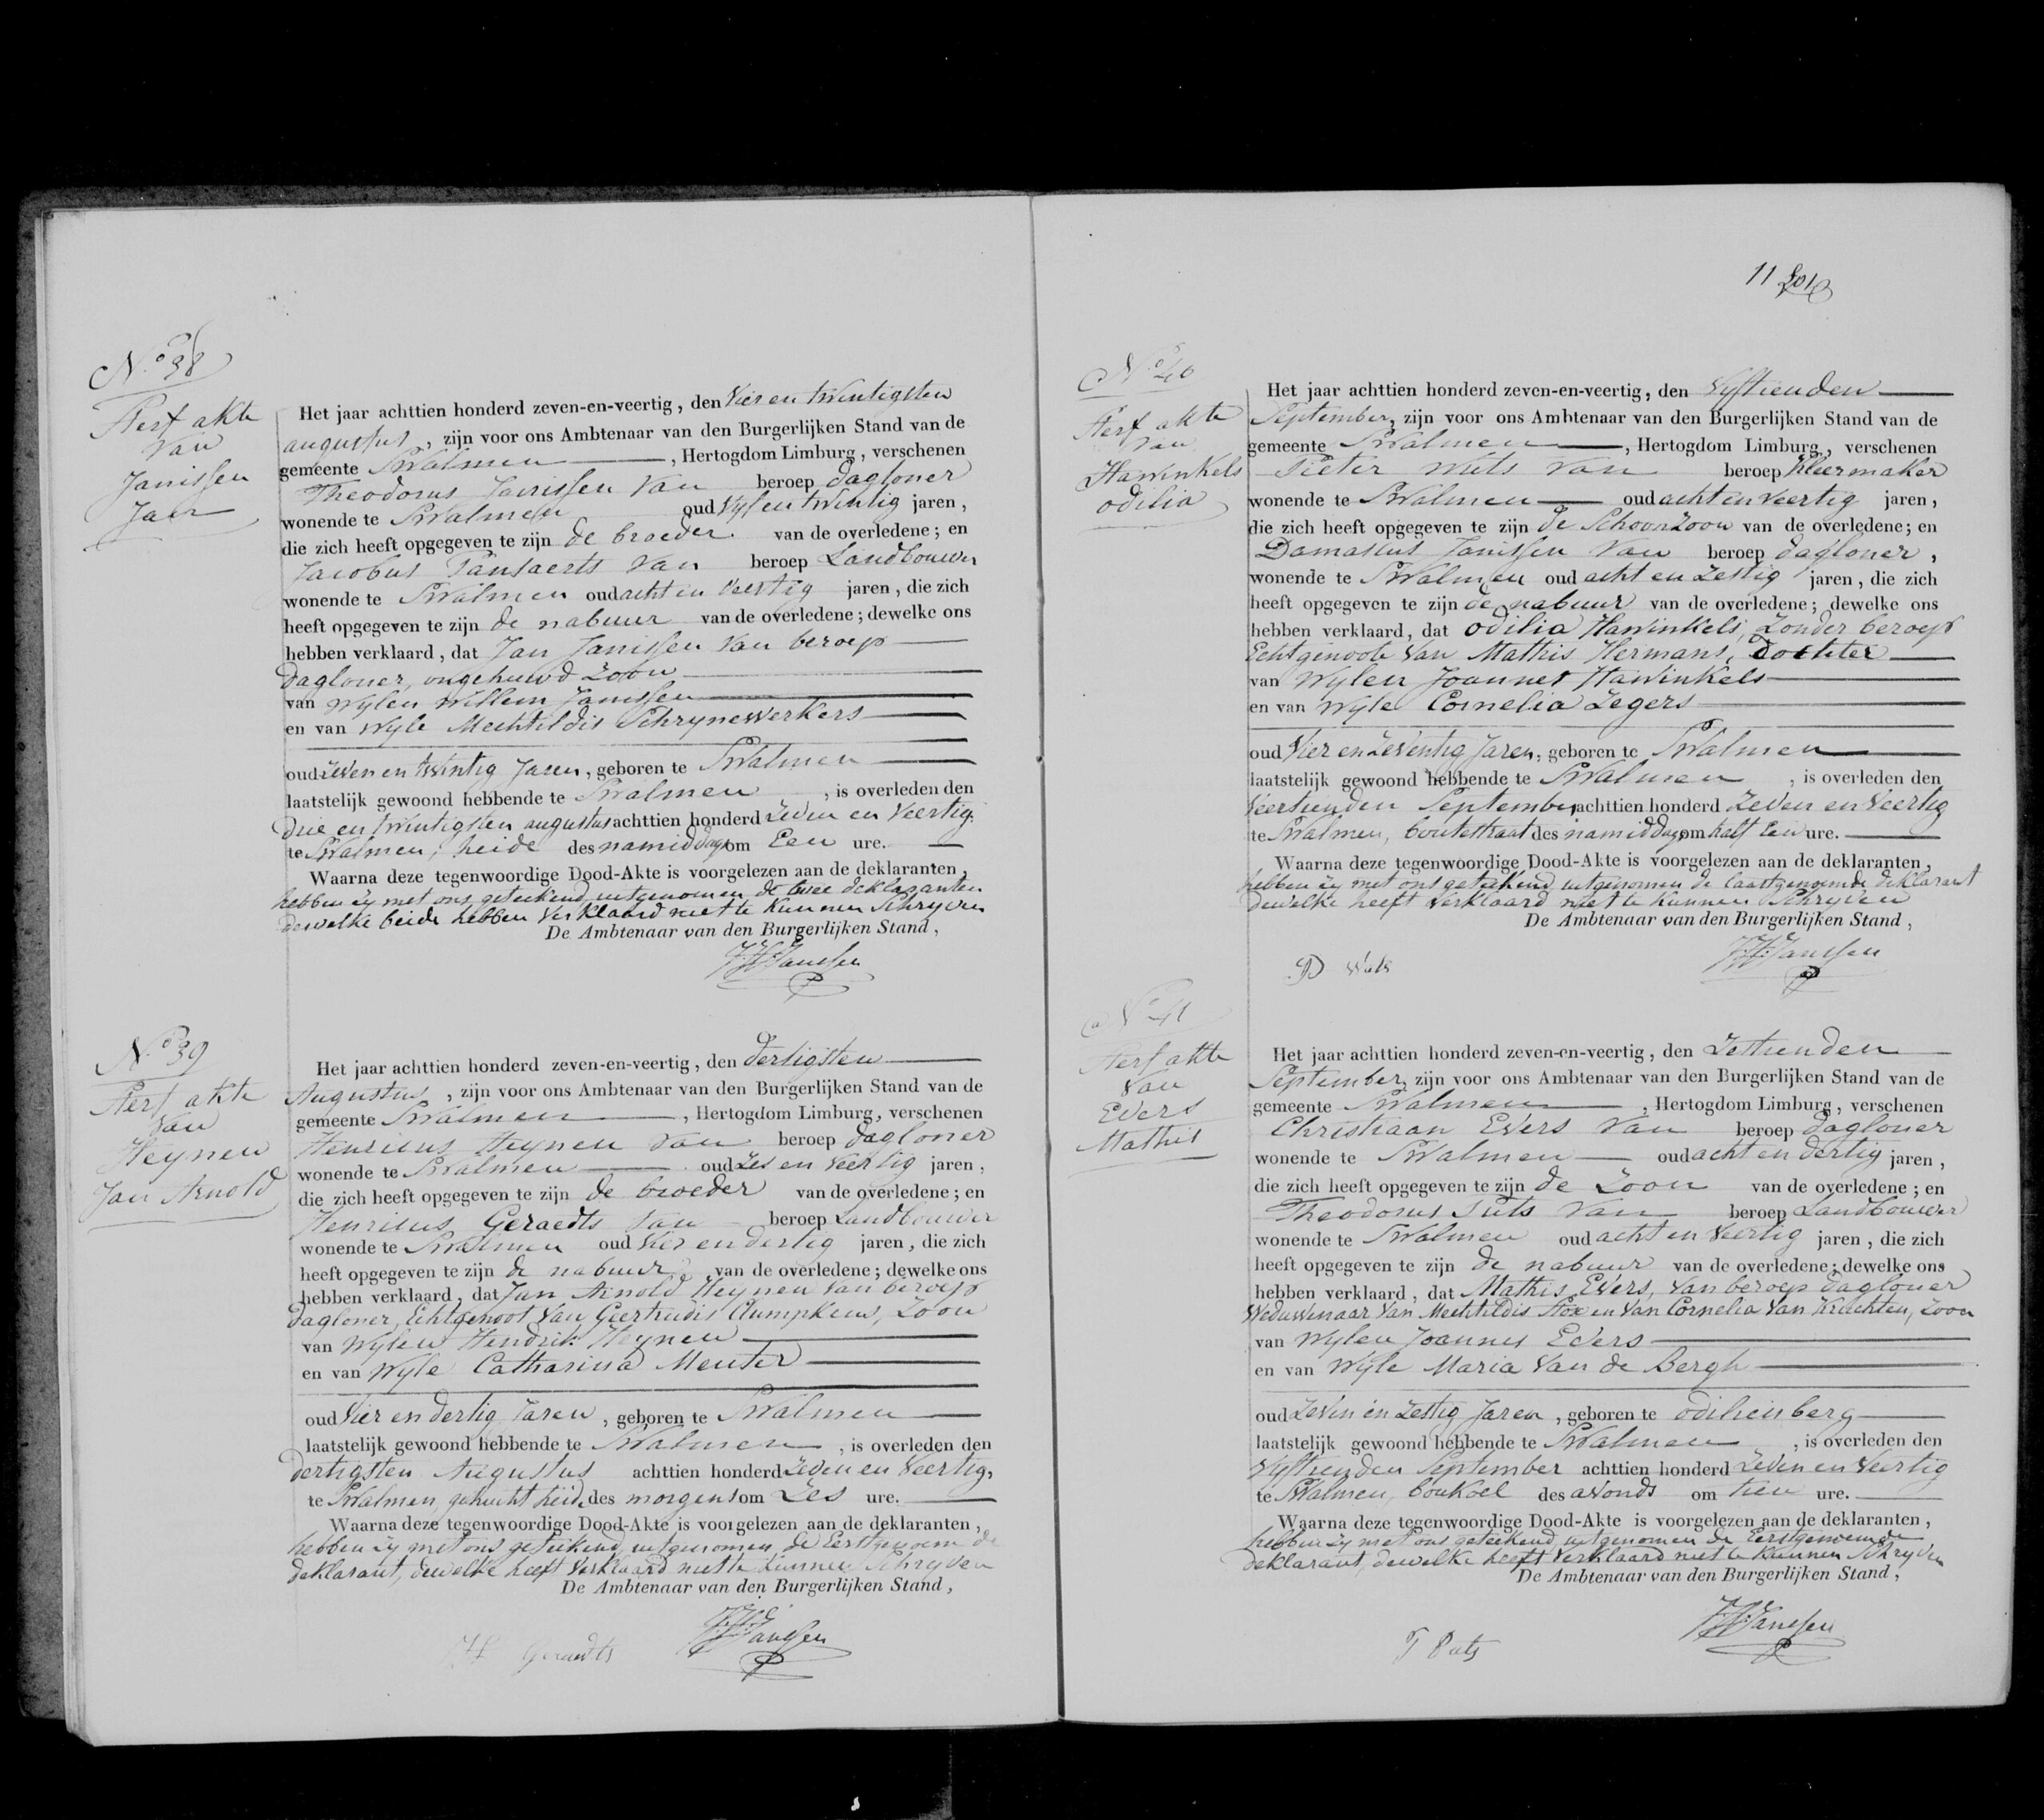 N.o 38
Sterf akte
Van
Janissen
Jan
Het jaar achttien honderd zeven-en-veertig, den Vier en twintigsten
augustus, zijn voor ons Ambtenaar van den Burgerlijken Stand van de
gemeente Swalmen, Hertogdom Limburg, verschenen
Theodorus Janissen Van beroep dagloner
wonende te Swalmen oud Vyf en twintig jaren,
die zich heeft opgegeven te zijn de broeder van de overledene; en
Jacobus Pansaerts Van beroep Landbouwer
wonende te Swalmen oud acht en veertig jaren, die zich
heeft opgegeven te zijn de nabuur van de overledene; dewelke ons
hebben verklaard, dat Jan Janissen Van beroep
dagloner, ongehuwd Zoon
van wylen Willem Janissen
en van wyle Mechtildis Schrynewerkers
oud Zeven en twintig Jaren, geboren te Swalmen
laatstelijk gewoond hebbende te Swalmen, is overleden den
drie en twintigsten augustus achttien honderd Zeven en Veertig,
te Swalmen, heide des namiddags om Een ure.
Waarna deze tegenwoordige Dood-Akte is voorgelezen aan de deklaranten,
hebben zy met ons geteekend uitgenomen de twee deklaranten
dewelke beide hebben Verklaard niet te kunnen Schryven
De Ambtenaar van den Burgerlijken Stand,
Janssen
N.o 39
Sterf akte
Van
Heynen
Jan Arnold
Het jaar achttien honderd zeven-en-veertig, den dertigsten
Augustus, zijn voor ons Ambtenaar van den Burgerlijken Stand van de
gemeente Swalmen, Hertogdom Limburg, verschenen
Henricus Heynen Van beroep dagloner
wonende te Swalmen oud Zes en Veertig jaren,
die zich heeft opgegeven te zijn de broeder van de overledene; en
Henricus Geraedts Van beroep Landbouwer
wonende te Swalmen oud Vier en dertig jaren, die zich
heeft opgegeven te zijn de nabuur van de overledene; dewelke ons
hebben verklaard, dat Jan Arnold Heynen Van beroep
dagloner, Echtgenoot Van Geertrudis Clumpkens, Zoon
van wylen Hendrik Heynen
en van wyle Catharina Menter
oud Vier en dertig Jaren, geboren te Swalmen
laatstelijk gewoond hebbende te Swalmen, is overleden den
dertigsten Augustus achttien honderd Zeven en Veertig,
te Swalmen, gehucht heide des morgens om Zes ure.
Waarna deze tegenwoordige Dood-Akte is voorgelezen aan de deklaranten,
hebben zy met ons geteekend, uitgenomen de Eerstgenoemde
deklarant, dewelke heeft Verklaard niet te kunnen Schryven
De Ambtenaar van den Burgerlijken Stand,
H Geraedts Janssen
11
N.o 40
Sterf akte
Van
Hawinkels
odilia
Het jaar achttien honderd zeven-en-veertig, den Vyftienden
September, zijn voor ons Ambtenaar van den Burgerlijken Stand van de
gemeente Swalmen, Hertogdom Limburg, verschenen
Pieter Wuts Van beroep kleermaker
wonende te Swalmen oud acht en veertig jaren,
die zich heeft opgegeven te zijn de Schoonzoon van de overledene; en
Damascus Janissen Van beroep dagloner,
wonende te Swalmen oud acht en Zestig jaren, die zich
heeft opgegeven te zijn de nabuur van de overledene; dewelke ons
hebben verklaard, dat odilia Hawinkels, Zonder beroep
Echtgenoote Van Mathis Hermans, Dochter
van wylen Joannes Hawinkels
en van wyle Cornelia Zegers
oud Vier en Zeventig Jaren, geboren te Swalmen
laatstelijk gewoond hebbende te Swalmen, is overleden den
Veertienden September achttien honderd Zeven en Veertig
te Swalmen, boutestraat des namiddags om half Een ure.
Waarna deze tegenwoordige Dood-Akte is voorgelezen aan de deklaranten,
hebben zy met ons geteekend uitgenomen de laatstgenoemde deklarant
dewelke heeft Verklaard niet te kunnen Schryven
De Ambtenaar van den Burgerlijken Stand,
P Janssen
N.o 41
Sterf akte
Van
Evers
Mathis
Het jaar achttien honderd zeven-en-veertig, den Zestienden
September, zijn voor ons Ambtenaar van den Burgerlijken Stand van de
gemeente Swalmen, Hertogdom Limburg, verschenen
Christiaan Evers Van beroep dagloner
wonende te Swalmen oud acht en dertig jaren,
die zich heeft opgegeven te zijn de Zoon van de overledene; en
Theodorus Puts Van beroep Landbouwer
wonende te Swalmen oud acht en Veertig jaren, die zich
heeft opgegeven te zijn de nabuur van de overledene; dewelke ons
hebben verklaard, dat Mathis Evers, Van beroep dagloner
Weduwenaar Van Mechtildis Stox en Van Cornelia Van Kruchten, Zoon
van wylen Joannes Evers
en van wyle Maria Van de Bergh
oud Zeven en Zestig Jaren, geboren te odilienberg
laatstelijk gewoond hebbende te Swalmen, is overleden den
Vyftienden September achttien honderd Zeven en Veertig
te Swalmen, boukoel des avonds om tien ure.
Waarna deze tegenwoordige Dood-Akte is voorgelezen aan de deklaranten,
hebben zy met ons geteekend uitgenomen de Eerstgenoemde
deklarant, dewelke heeft Verklaard niet te kunnen Schryven
De Ambtenaar van den Burgerlijken Stand,
T Puts Janssen